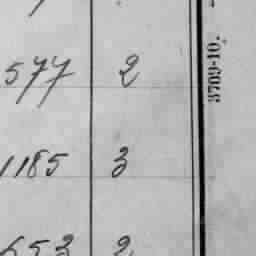 577 2
1185 3
653 2
3709-10.